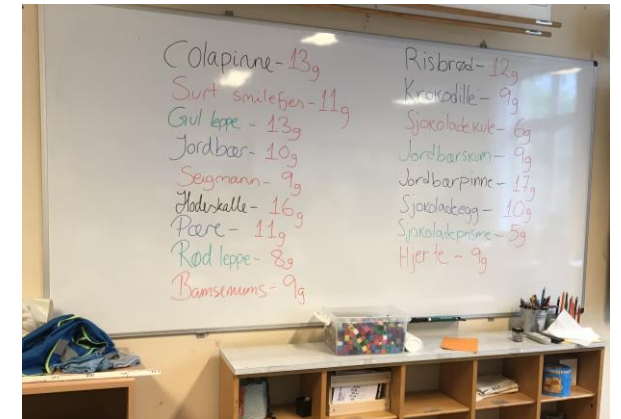 Colapinne - 13g
Surt smilefjes - 11g
Gul leppe - 13g
Jordbær - 10g
Seigmann - 9g
Hodeskalle - 16g
Pære - 11g
Rød leppe - 8g
Bamsemums - 9g
Risbrød - 12g
Krokodille - 9g
Sjokoladekule - 6g
Jordbærskum - 9g
Jordbærpinne - 17g
Sjokoladeegg - 10g
Sjokoladeprisme - 5g
Hjerte - 9g